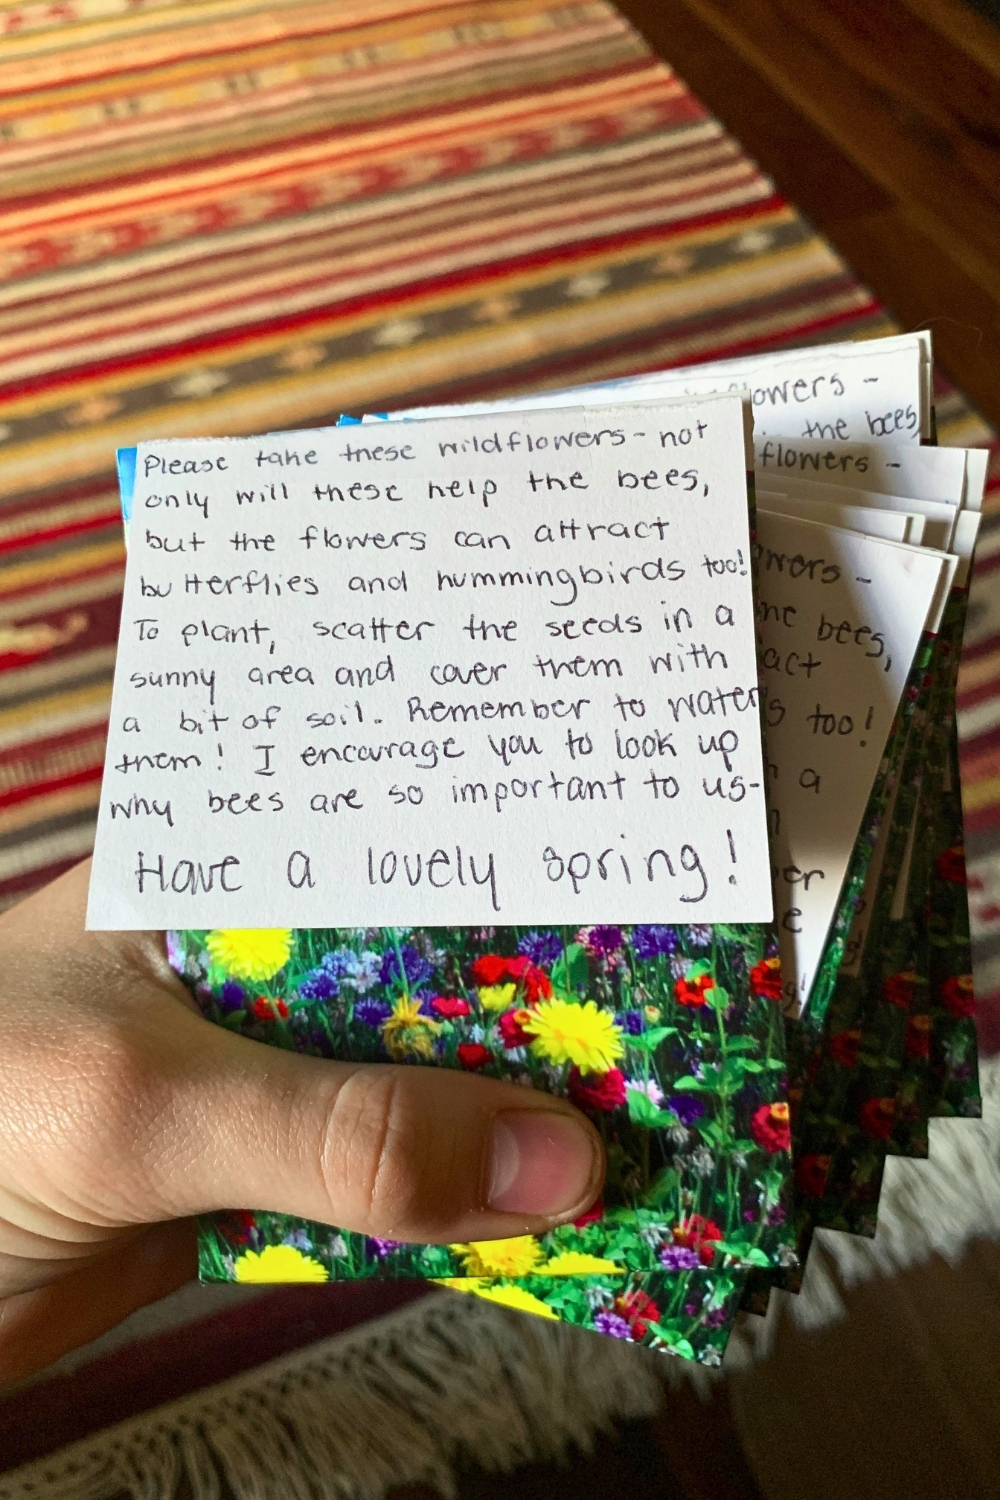 Please take these wildflowers - not
only will these help the bees,
but the flowers can attract
butterflies and hummingbirds too!
To plant, scatter the seeds in a
sunny area and cover them with
a bit of soil. Remember to water
them! I encourage you to look up
why bees are so important to us-
Have a lovely spring!
flowers -
the bees,
flowers -
bees,
too!
a